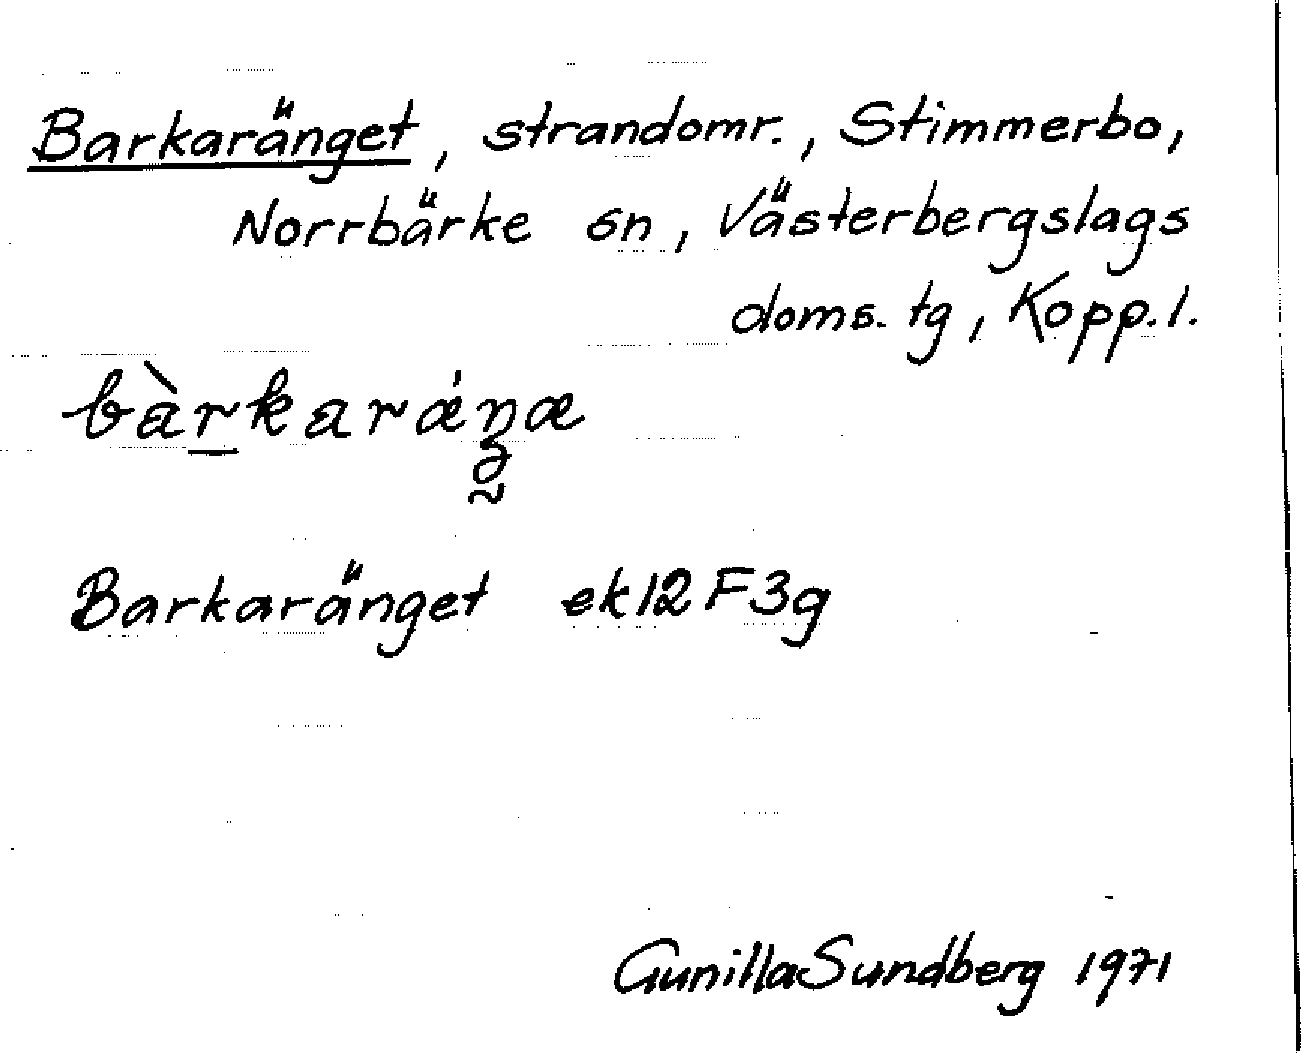 Barkaränget, strandomr., Stimmerbo,
Norrbärke sn, Västerbergslags
doms. tg, Kopp.l.
bàrkaráŋæ
Barkaränget ek12F3g
Gunilla Sundberg 1971